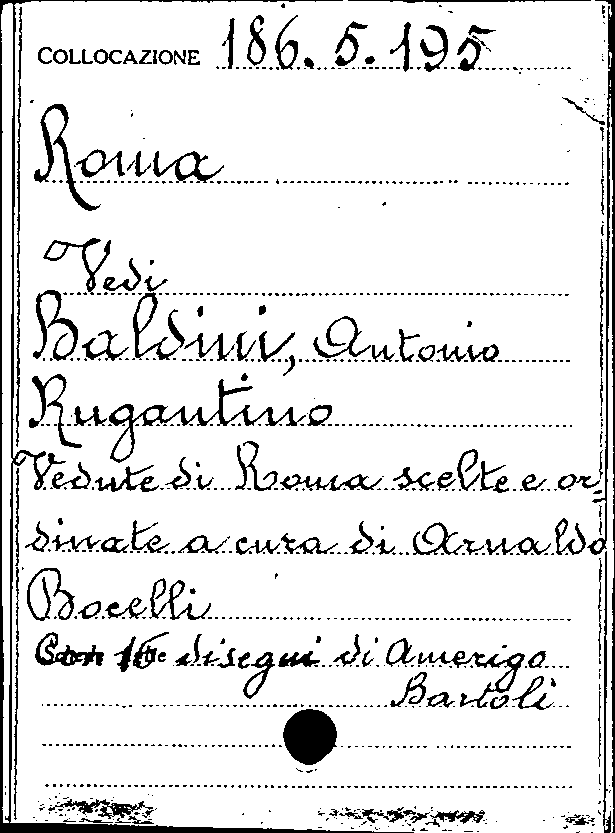 COLLOCAZIONE 186. 5. 195
Roma
Vedi
Baldini, Antonio
Rugantino
Vedute di Roma scelte e or=
dinate a cura di Arnaldo
Bocelli
Con 16 disegni di Amerigo
Bartoli